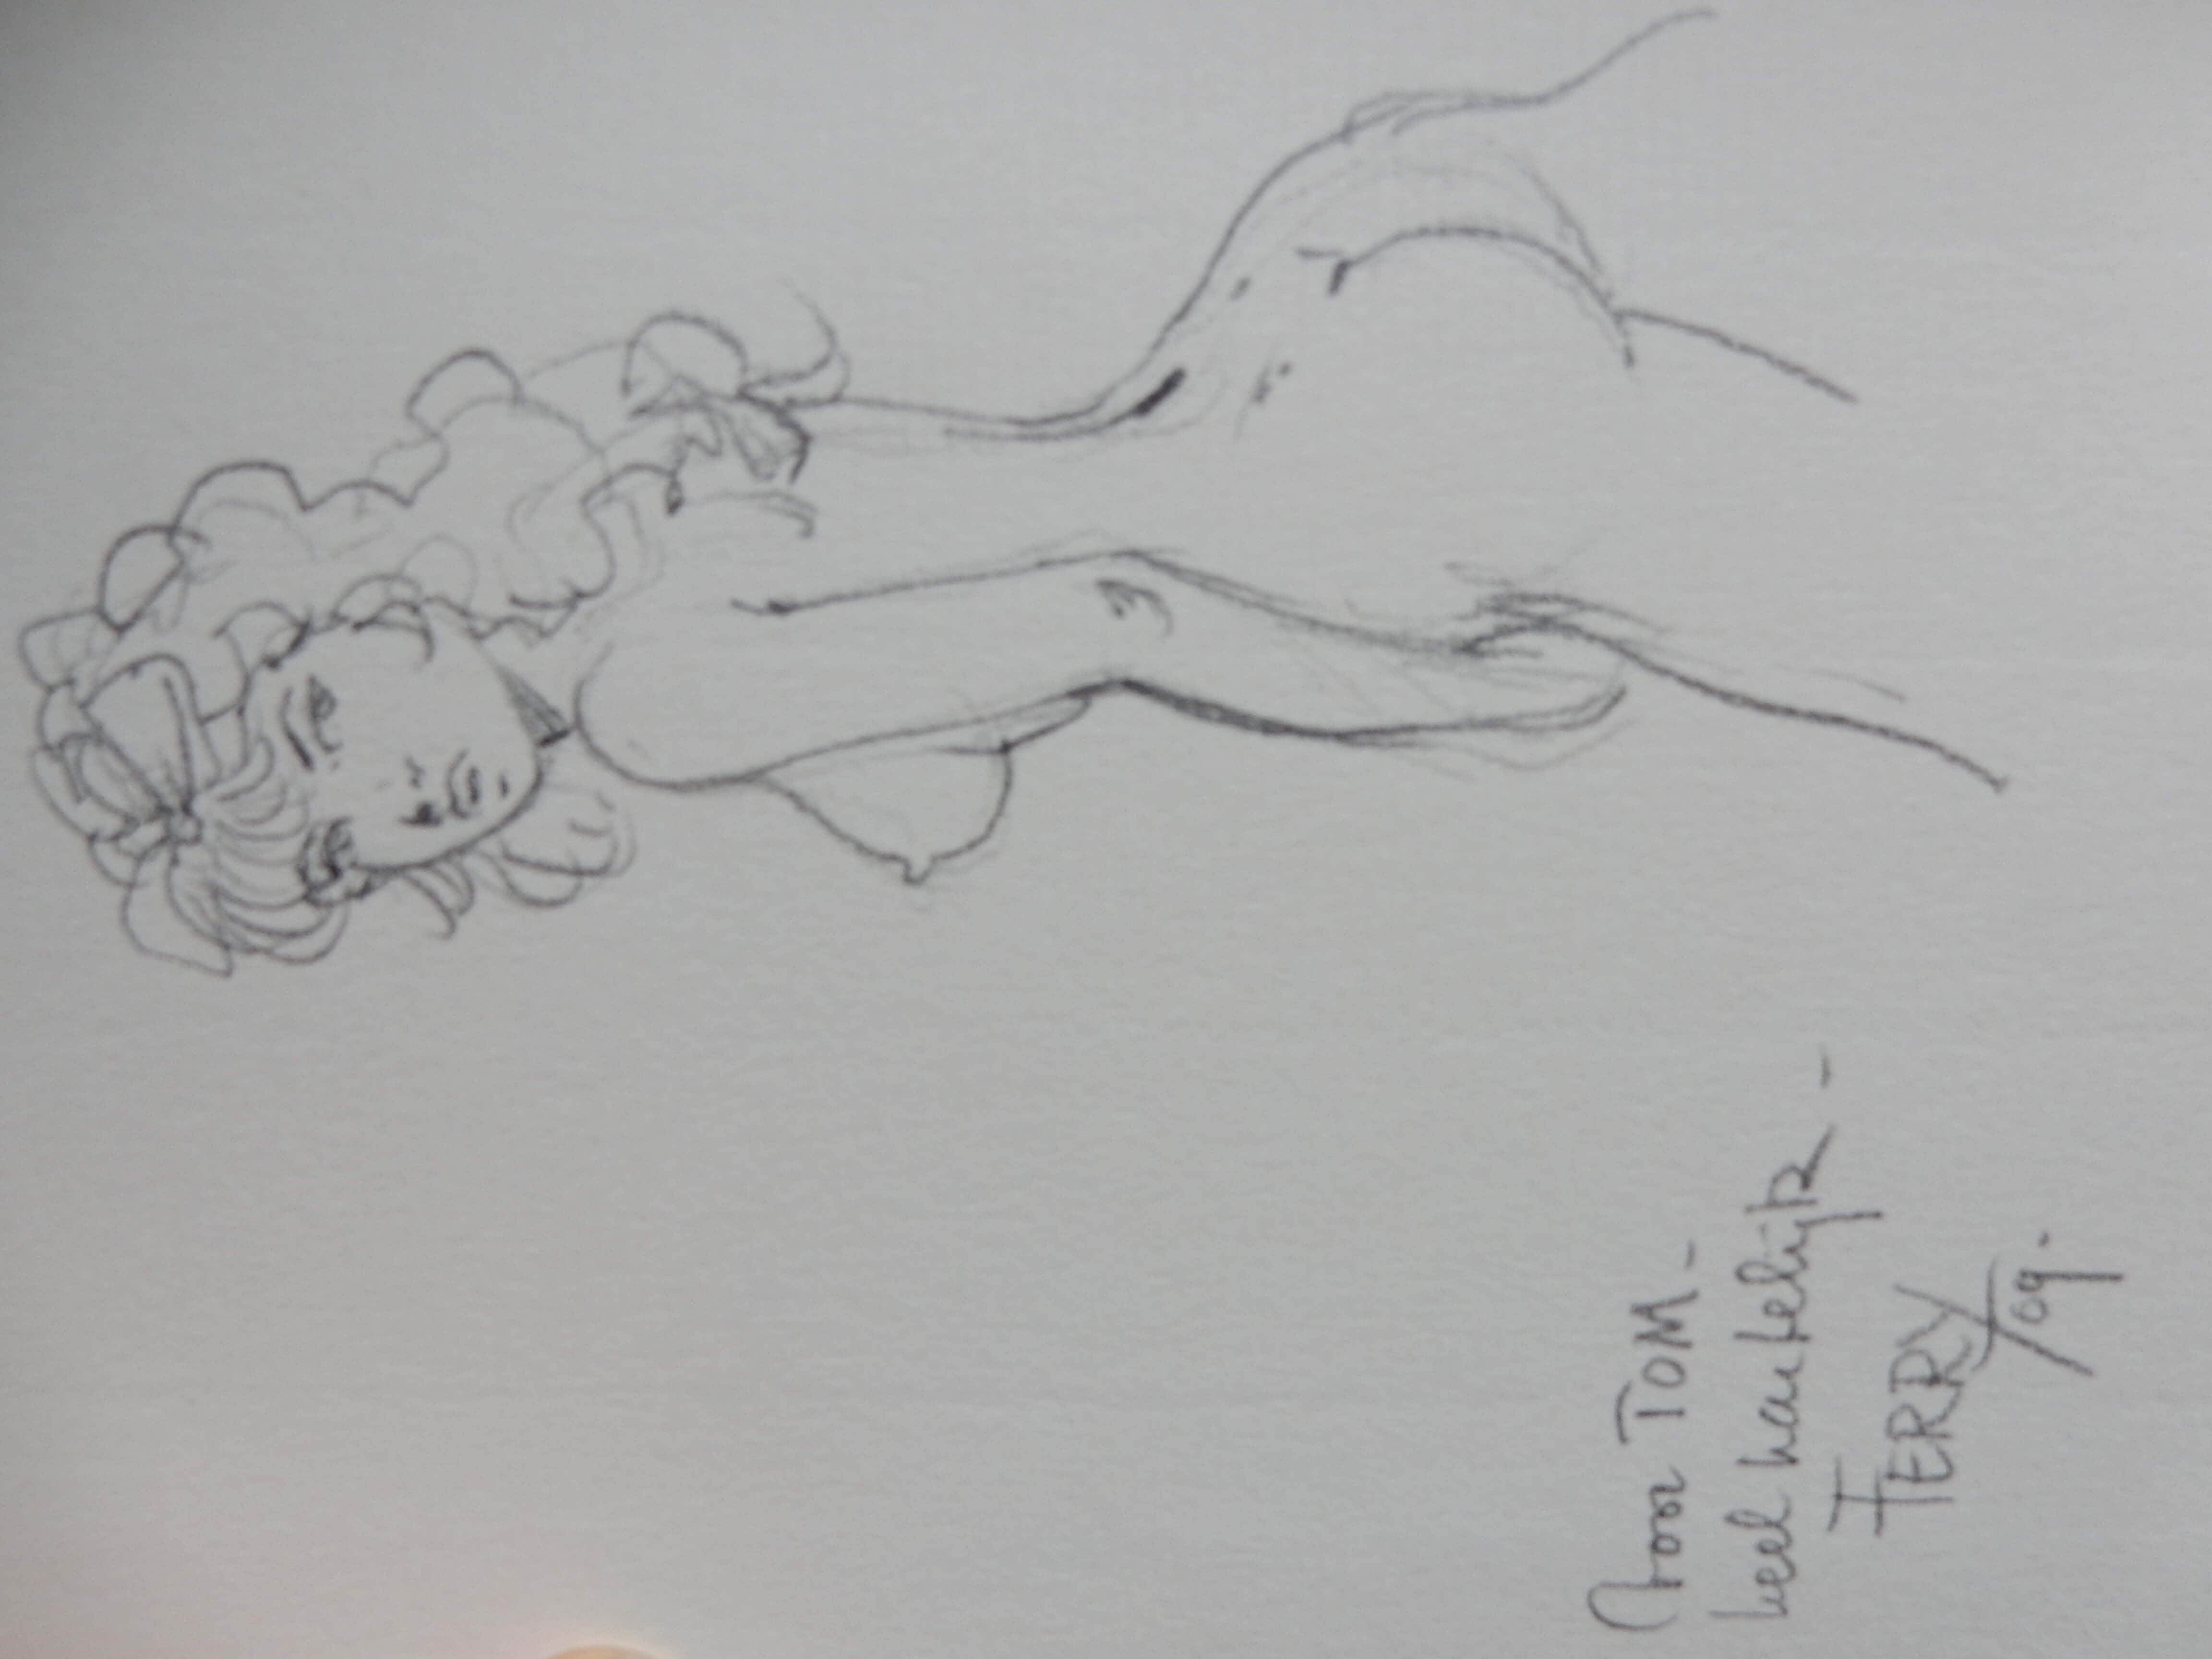 Voor TOM -
heel hartelijk -
FERRY
/09.